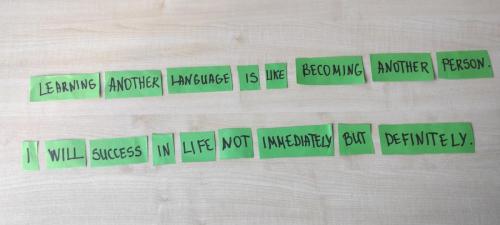 LEARNING ANOTHER LANGUAGE IS LIKE BECOMING ANOTHER PERSON.
I WILL SUCCESS IN LIFE NOT IMMEDIATELY BUT DEFINITELY.